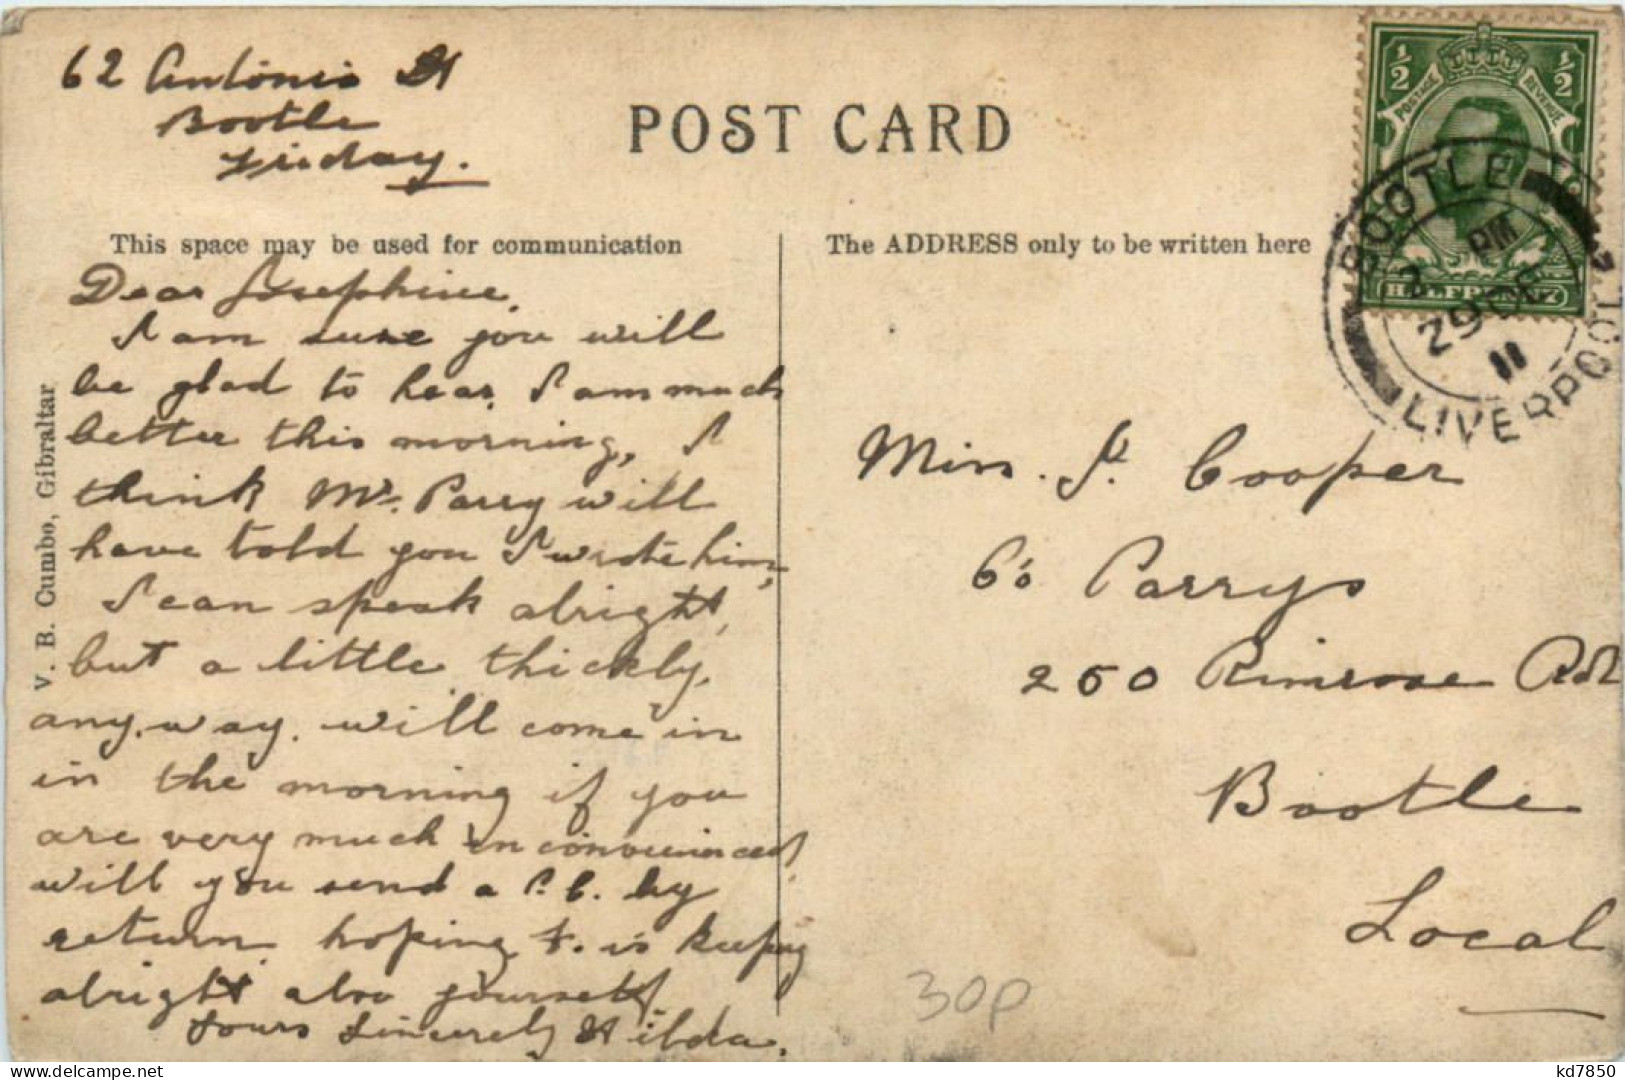 62 Antonio St
Bootle
Friday.
POST CARD
This space may be used for communication
The ADDRESS only to be written here
Dear Josephine,
I am sure you will
be glad to hear, I am much
better this morning, I
think Mr. Parry will
have told you I wrote him,
I can speak alright,
but a little thickly,
any.way. will come in
in the morning if you
are very much inconvenienced,
will you send a P.C. by
return hoping J. is keeping
alright also yourself
Yours Sincerely Hilda.
V. B. Cumbo, Gibraltar
Miss. J. Cooper
C/o Parrys
250 Rimrose Rd
Bootle
Local
30p
½ ½
POSTAGE REVENUE
HALFPENNY
BOOTLE
PM
29 DE
11
LIVERPOOL
kd7850